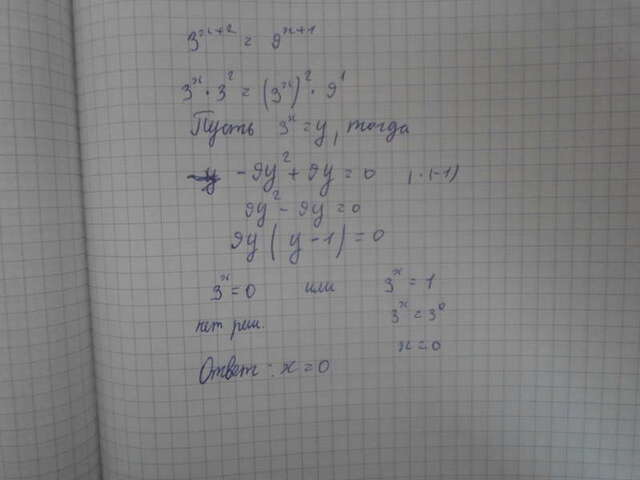 3^{x+2} = 9^{x+1}
3^x · 3^2 = (3^x)^2 · 9^1
Пусть 3^x = y, тогда
-9y^2 + 9y = 0 | · (-1)
9y^2 - 9y = 0
9y ( y - 1 ) = 0
3^x = 0 или 3^x = 1
нет реш. 3^x = 3^0
x = 0
Ответ: x = 0